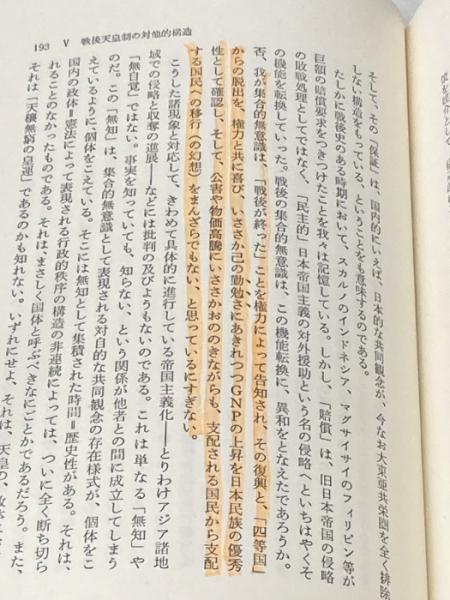 193　Ⅴ　戦後天皇制の対他的構造
そして、その「保証」は、国内的にいえば、日本的な共同観念が、今なお大東亜共栄圏を全く排除
しない構造をもっている、ということをも意味するのである。
たしかに戦後史のある時期において、スカルノのインドネシア、マグサイサイのフィリピン等が
巨額の賠償要求をつきつけたことを我々は記憶している。しかし、「賠償」は、旧日本帝国の侵略
の敗戦処理としてではなく、「民主的」日本帝国主義の対外援助という名の侵略へといちはやくそ
の機能を転換していった。戦後の集合的無意識は、この機能転換に、異和をとなえたであろうか。
否、我が集合的無意識は、「戦後が終った」ことを権力によって告知され、その復興と、「四等国」
からの脱出を、権力と共に喜び、いささか己の勤勉さにあきれつつGNPの上昇を日本民族の優秀
性として確認し、公害や物価高騰にいささかおののきながらも、支配される国民から支配
する国民への移行（への幻想）をまんざらでもない、と思っているにすぎない。
こうした諸現象と対応して、きわめて具体的に進行している帝国主義化――とりわけアジア諸地
域での侵略と収奪の進展――などには批判の及びようもないのである。これは単なる「無知」や
「無自覚」ではない。事実を知っていても、知らない、という関係が他者との間に成立してしまう
のである。この「無知」は、集合的無意識として表現される対自的な共同観念の存在様式が、個体をこ
えているように、個体をこえている。そこには無知として集積された時間＝歴史性がある。それは、
国内の政体＝憲法によって表現される行政的秩序の構造の非連続によっては、ついに全く断ち切ら
れることのなかったものである。それは、まさしく国体と呼ぶべきなにごとかであるだろう。また、
それは「天壌無窮の皇運」であるのかも知れない。いずれにせよ、それは、天皇の、